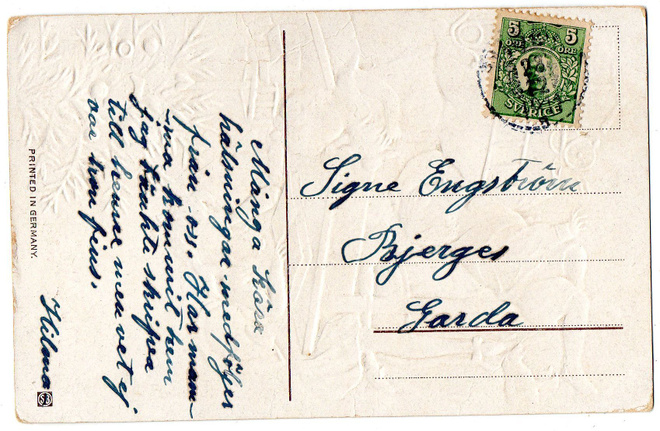 Många kära
hälsningar medföljer
från oss. Har mam-
ma kommit hem
jag tänkte skrifva
till henne men vet ej
var hon fins.
Hilma
PRINTED IN GERMANY.
5 5
ÖRE ÖRE
SVERIGE
Signe Engström
Bjerges
Garda